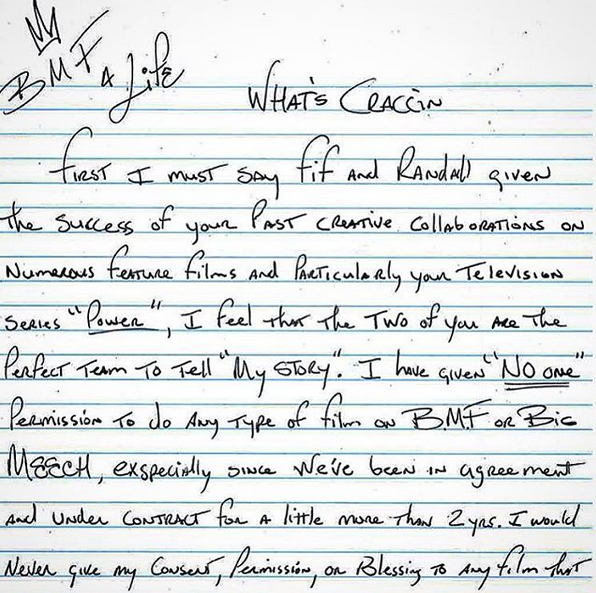 BMF 4 Life
WHAT'S CRACCIN
First I must say Fif and Randall given
the success of your PAST CREATIVE COllABORATIONS ON
Numerous feature films and Particularly your Television
series "Power", I feel that the Two of you are the
Perfect Team To Tell "My STORY". I have given "NO ONE"
Permission To do Any Type of film on B.M.F or Big
MEECH, exspecially since We've been in agreement
and under CONTRACT for a little more than 2 yrs. I would
Never give my Consent, Permission, or Blessing To Any film that